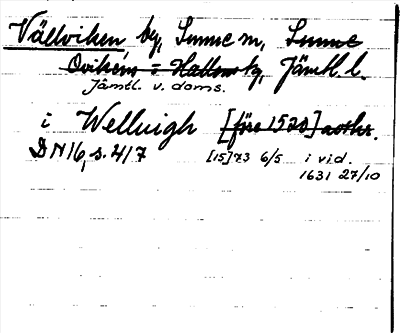 Vällviken by, Sunne sn, Sunne
Ovikens o Hallens tg, Jämtl. l.
Jämtl. v. doms.
i Welluigh [före 1520] avskr.
DN 16, s. 417 [15]73 6/5 i vid.
1631 27/10